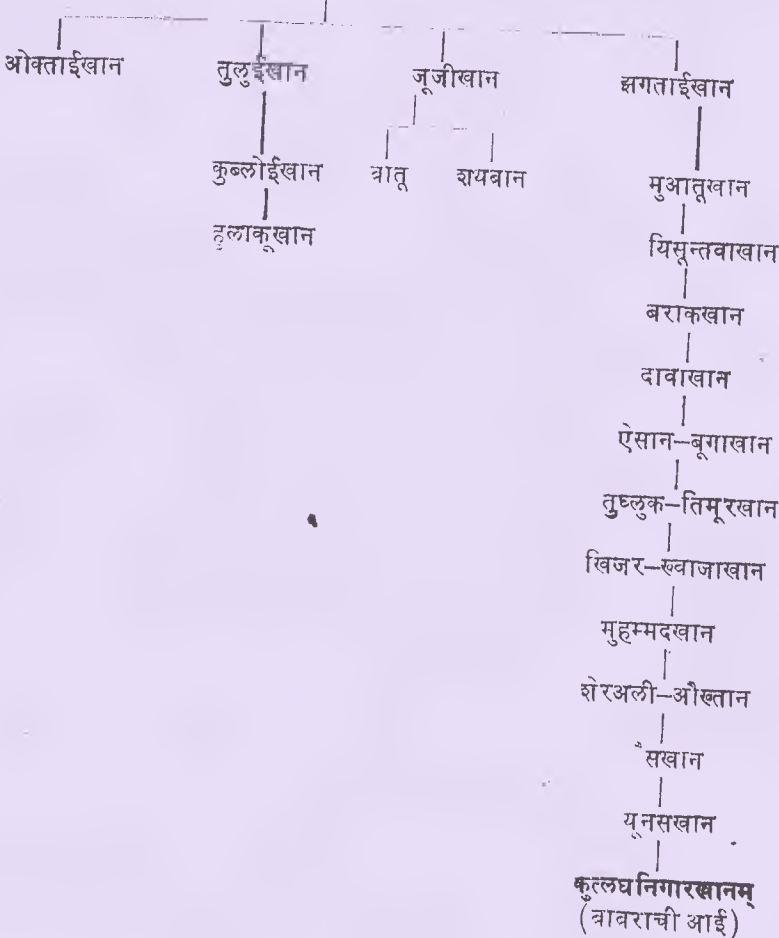 ओक्ताईखान तुलुईखान जूजीखान झगताईखान
कुब्लोईखान बातू शयबान मुआतूखान
हुलाकूखान यिसून्तवाखान
बराकखान
दावाखान
ऐसान–बूगाखान
तुघ्लुक–तिमूरखान
खिजर–ख्वाजाखान
मुहम्मदखान
शेरअली–औख्तान
सखान
यूनसखान
कुत्लघनिगारखानम्
(बाबराची आई)